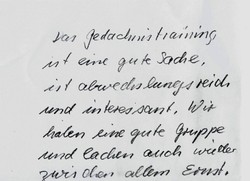 Das Gedächnistraining
ist eine gute Sache,
ist abwechslungsreich
und interessant. Wir
haben eine gute Gruppe
und lachen auch weiter
zwischen allem Ernst.